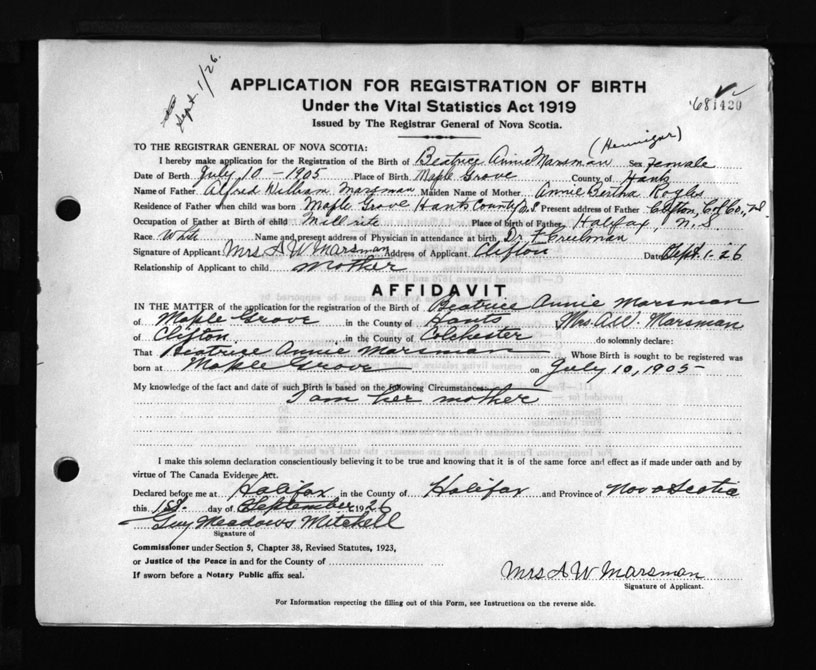 Sept. 1/26.
APPLICATION FOR REGISTRATION OF BIRTH
Under the Vital Statistics Act 1919
Issued by The Registrar General of Nova Scotia.
TO THE REGISTRAR GENERAL OF NOVA SCOTIA:
(Hennigar)
I hereby make application for the Registration of the Birth of Beatrice Annie Marsman Sex Female
Date of Birth July 10 - 1905 Place of Birth Maple Grove County of Hants
Name of Father Alfred William Marsman Maiden Name of Mother Annie Bertha
Residence of Father when child was born Maple Grove Hants County N.S Present address of Father Clifton, Col Co., N.S.
Occupation of Father at Birth of child Mill Place of Birth of Father Halifax, N.S
Race White Name and present address of Physician in attendance at birth, Dr.
Signature of Applicant Mrs A W Marsman Address of Applicant Clifton Date Sept. 1-26
Relationship of Applicant to child mother
AFFIDAVIT
IN THE MATTER of the application for the registration of the Birth of Beatrice Annie Marsman
of Maple Grove in the County of Hants Mrs. A.W. Marsman
of Clifton in the County of Colchester do solemnly declare:
That Beatrice Annie Marsman Whose Birth is sought to be registered was
born at Maple Grove on July 10, 1905-
My knowledge of the fact and date of such Birth is based on the following Circumstances:
I am her mother
I make this solemn declaration conscientiously believing it to be true and knowing that it is of the same force and effect as if made under oath and by
virtue of The Canada Evidence Act.
Declared before me at Halifax in the County of Halifax and Province of Nova Scotia
this 1st. day of September 1926
Guy Meadows Mitchell
Signature of
Commissioner under Section 5, Chapter 38, Revised Statutes, 1923,
or Justice of the Peace in and for County of
If sworn before a Notary Public affix seal.
Mrs A W Marsman
Signature of Applicant.
For Information respecting the filling out of this Form, see Instructions on the reverse side.